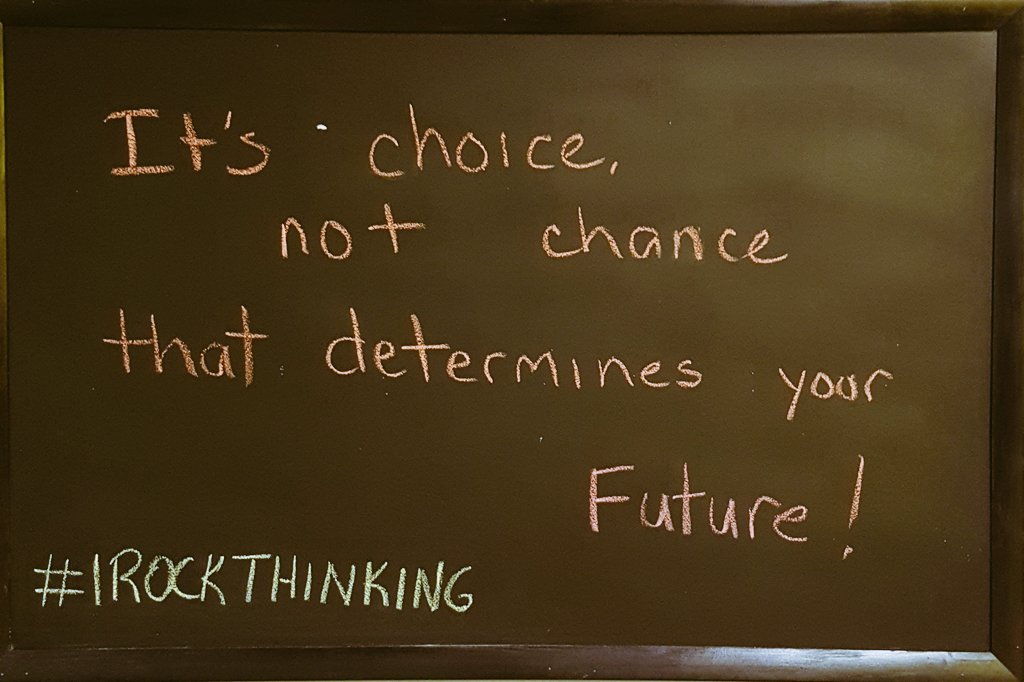 It's choice,
not chance
that determines your
Future!
#IROCKTHINKING